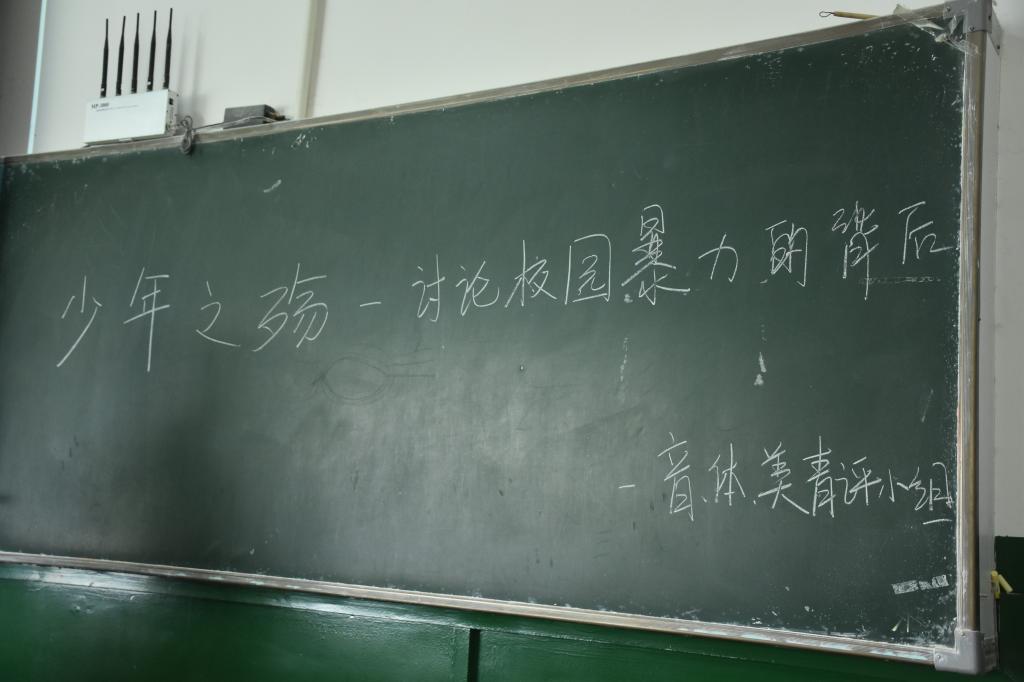 HP-3000
少年之殇-讨论校园暴力的背后
-音、体、美青评小组